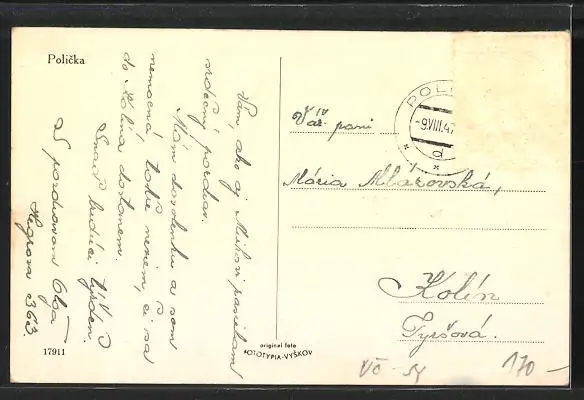 Polička
Vám, ako aj Mirkovi posielam
srdečný pozdrav.
Mám dovolenku a som
nemocná, takže neviem, či sa
do Kolína dostanem.
Snáď budúci týžden.
S pozdravom Oľga
363.
17911
original foto
FOTOTYPIA-VYŠKOV
POLI
-9.VIII.47
d
Váž. pani
Mária Mlázovská,
Kolín
Tyršová.
170-